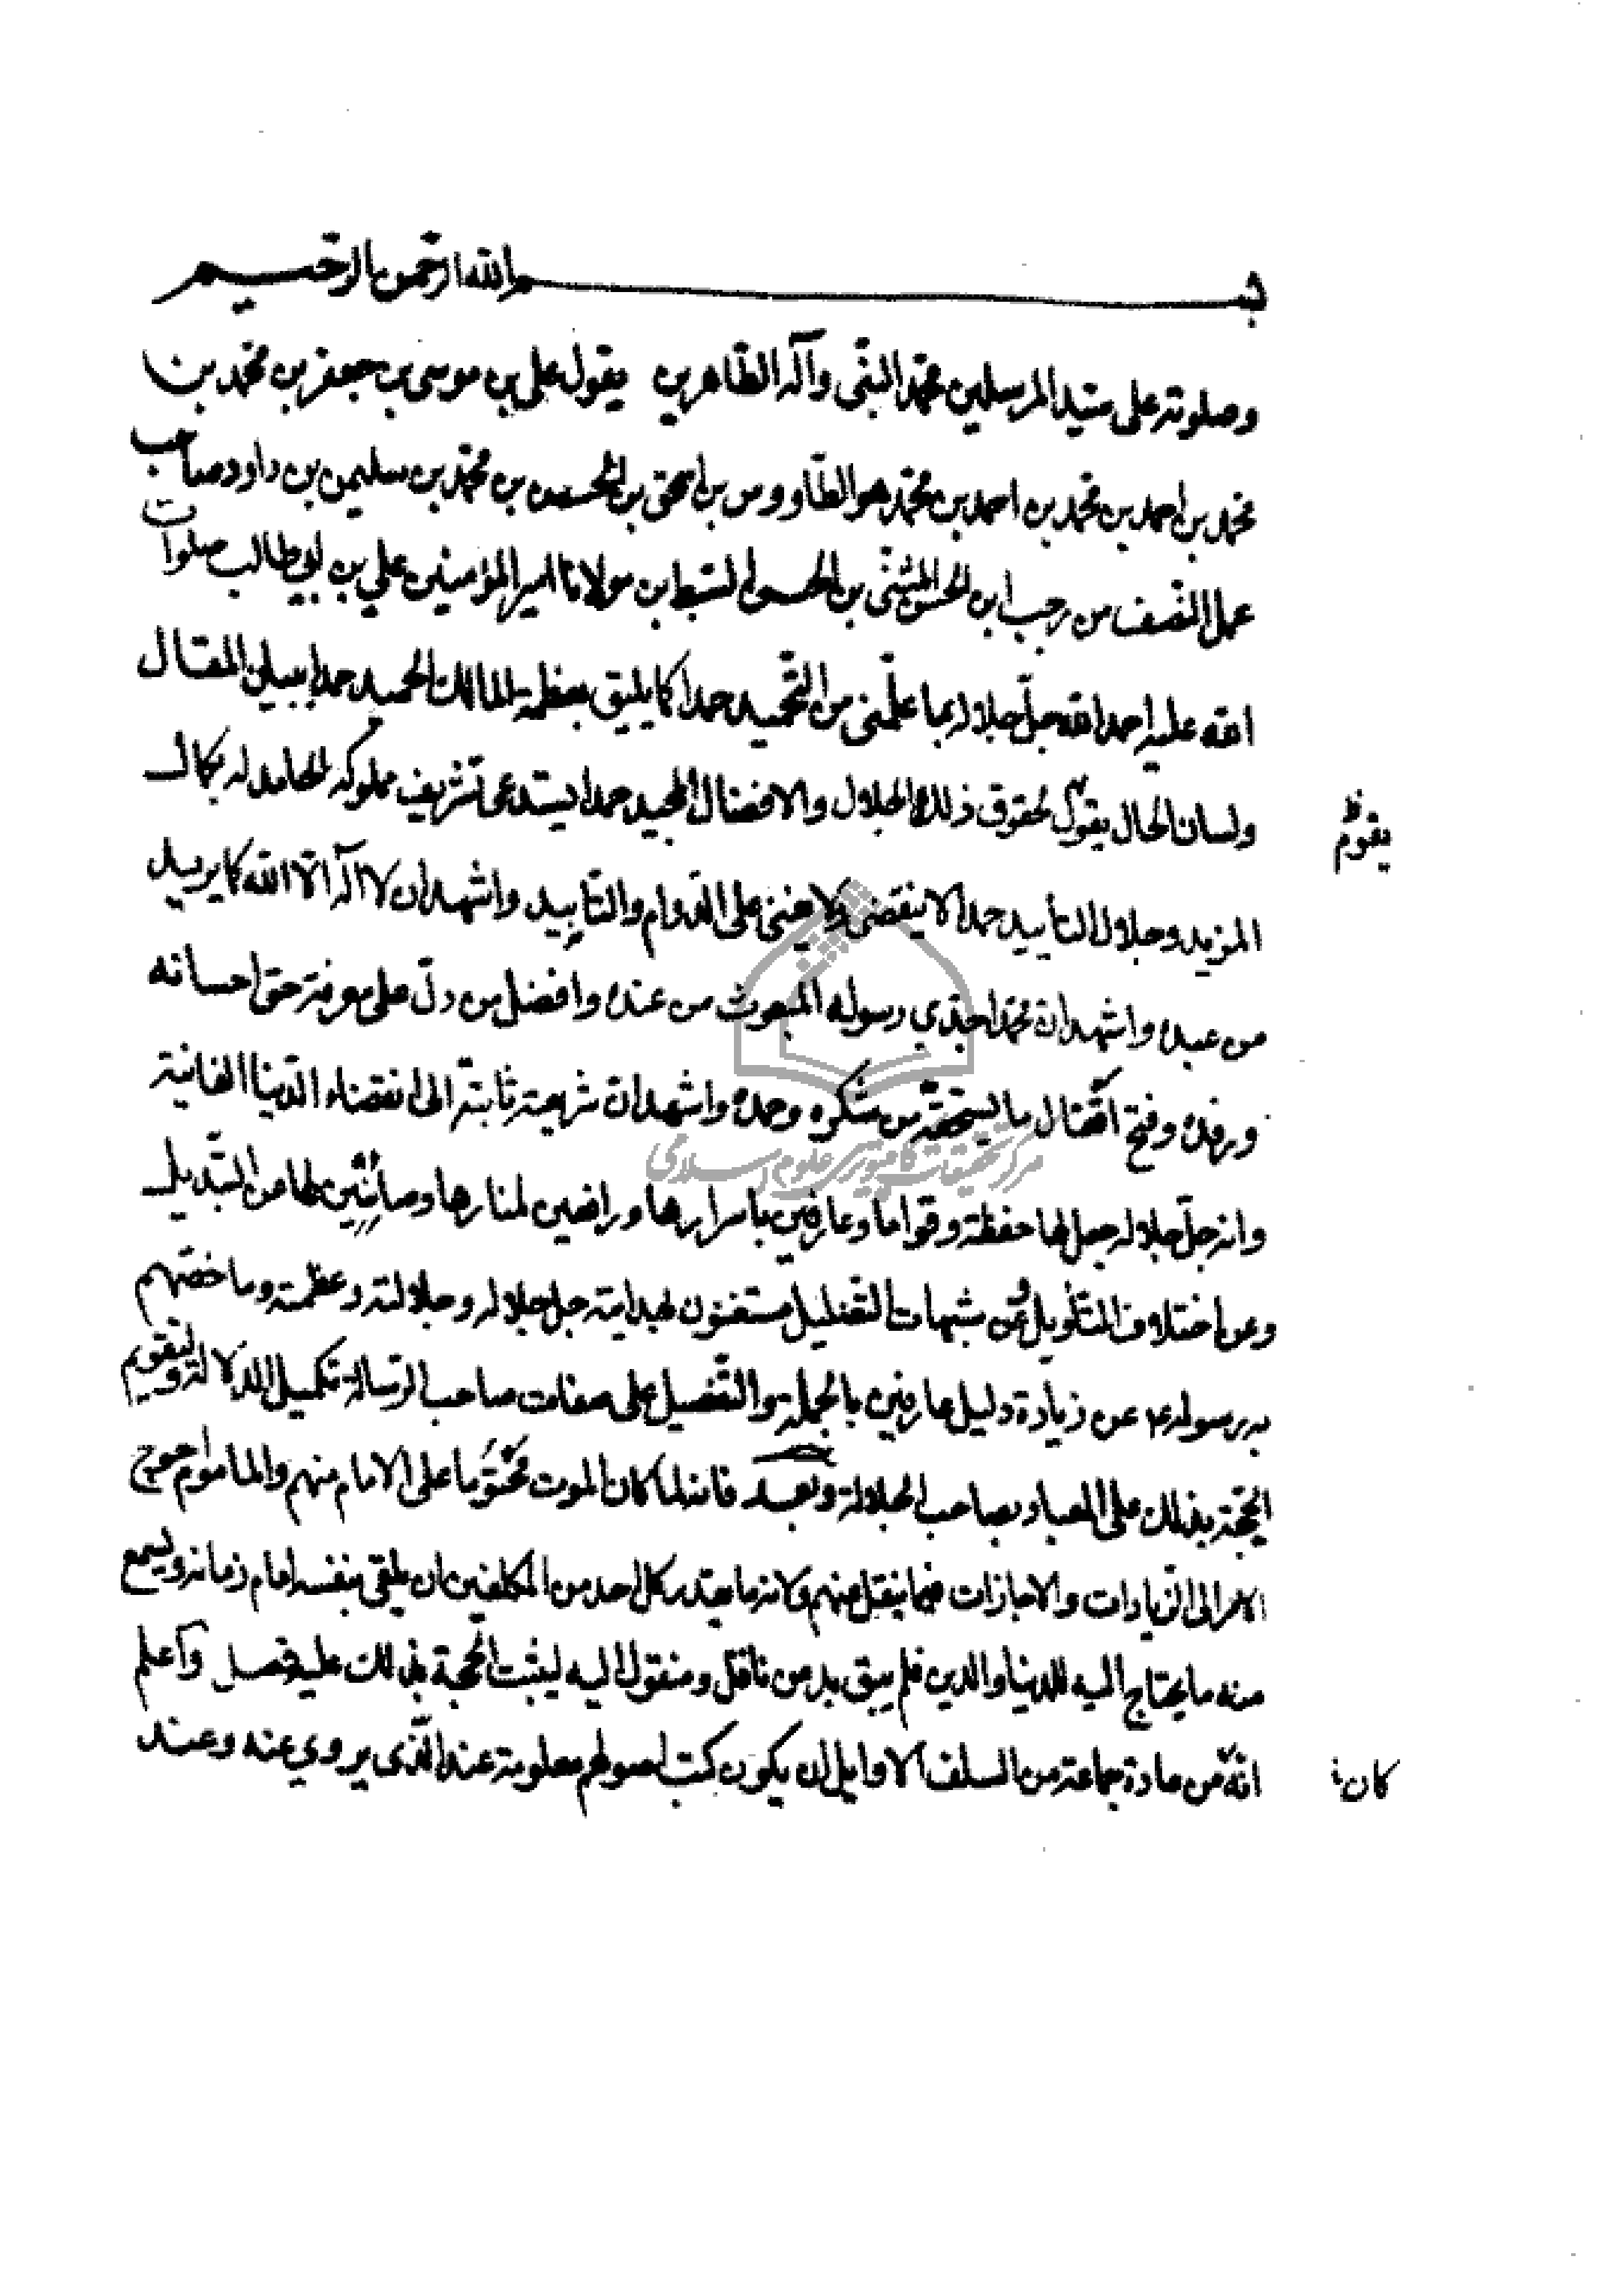 بسم الله الرحمن الرحيم
وصلوته على سيد المرسلين محمد النبي وآله الطاهرين يقول علي بن موسى بن جعفر بن محمد بن
محمد بن احمد بن محمد بن احمد بن محمد هو الطاووس بن اسحق بن الحسن بن محمد بن سليمن بن داود صاحب
عمل النصف من رجب ابن الحسن المثنى بن الحسن السبط ابن مولانا امير المؤمنين علي بن ابي طالب صلوات
الله عليه احمد الله جل جلاله بما علمني من التحميد حمدا كما يليق بعظمة المالك الحميد حمدا ببيان المقال
ولسان الحال يقول بحقوق ذلك الجلال والافضال المجيد حمدا يستدعي تشريف مملوكه الحامد له بكمال
يقوم ظ
المزيد وجلال التأييد حمدا لا ينقضي ولا يفنى على الدوام والتابيد واشهد ان لا اله الا الله كما يريد
من عبده واشهد ان محمدا جدي رسوله المبعوث من عنده وافضل من دل على معرفة حق احسانه
ورفده وفتح اقفال ما يستحقه من شكره وحمده واشهد ان شريعته ثابتة الى انقضاء الدنيا الفانية
وانه جل جلاله جعل لها حفظة وقواما وعارفين باسرارها ورافعين لمنارها وصائنين لها من التبديل
وعن اختلاف التأويل وعن شبهات التضليل مستغنون بهداية جل جلاله وجلالته وعظمته وما خصهم
به رسوله ص عن زيادة دليل عارفين بالجملة والتفصيل على صفات صاحب الرسالة تكميل الدلالة ولتقويم
الحجة بذلك على العباد بصاحب الجلالة وبعد فانه لما كان الموت محتوما على الامام منهم والماموم احوج
الامر الى الزيادات والاجازات فيما ينقل عنهم ولانه ما يقدر كل احد من المكلفين ان يلقى بنفسه امام زمانه ويسمع
منه ما يحتاج اليه للدنيا والدين فلم يبق بد من ناقل ومنقول اليه ليثبت الحجة بذلك عليه فصل واعلم
انه من عادة جماعة من السلف الاوايل ان يكون كتب اصولهم معلومة عند الذي يروي عنه وعند
كان خ
مركز تحقيقات كامپيوتري علوم اسلامي